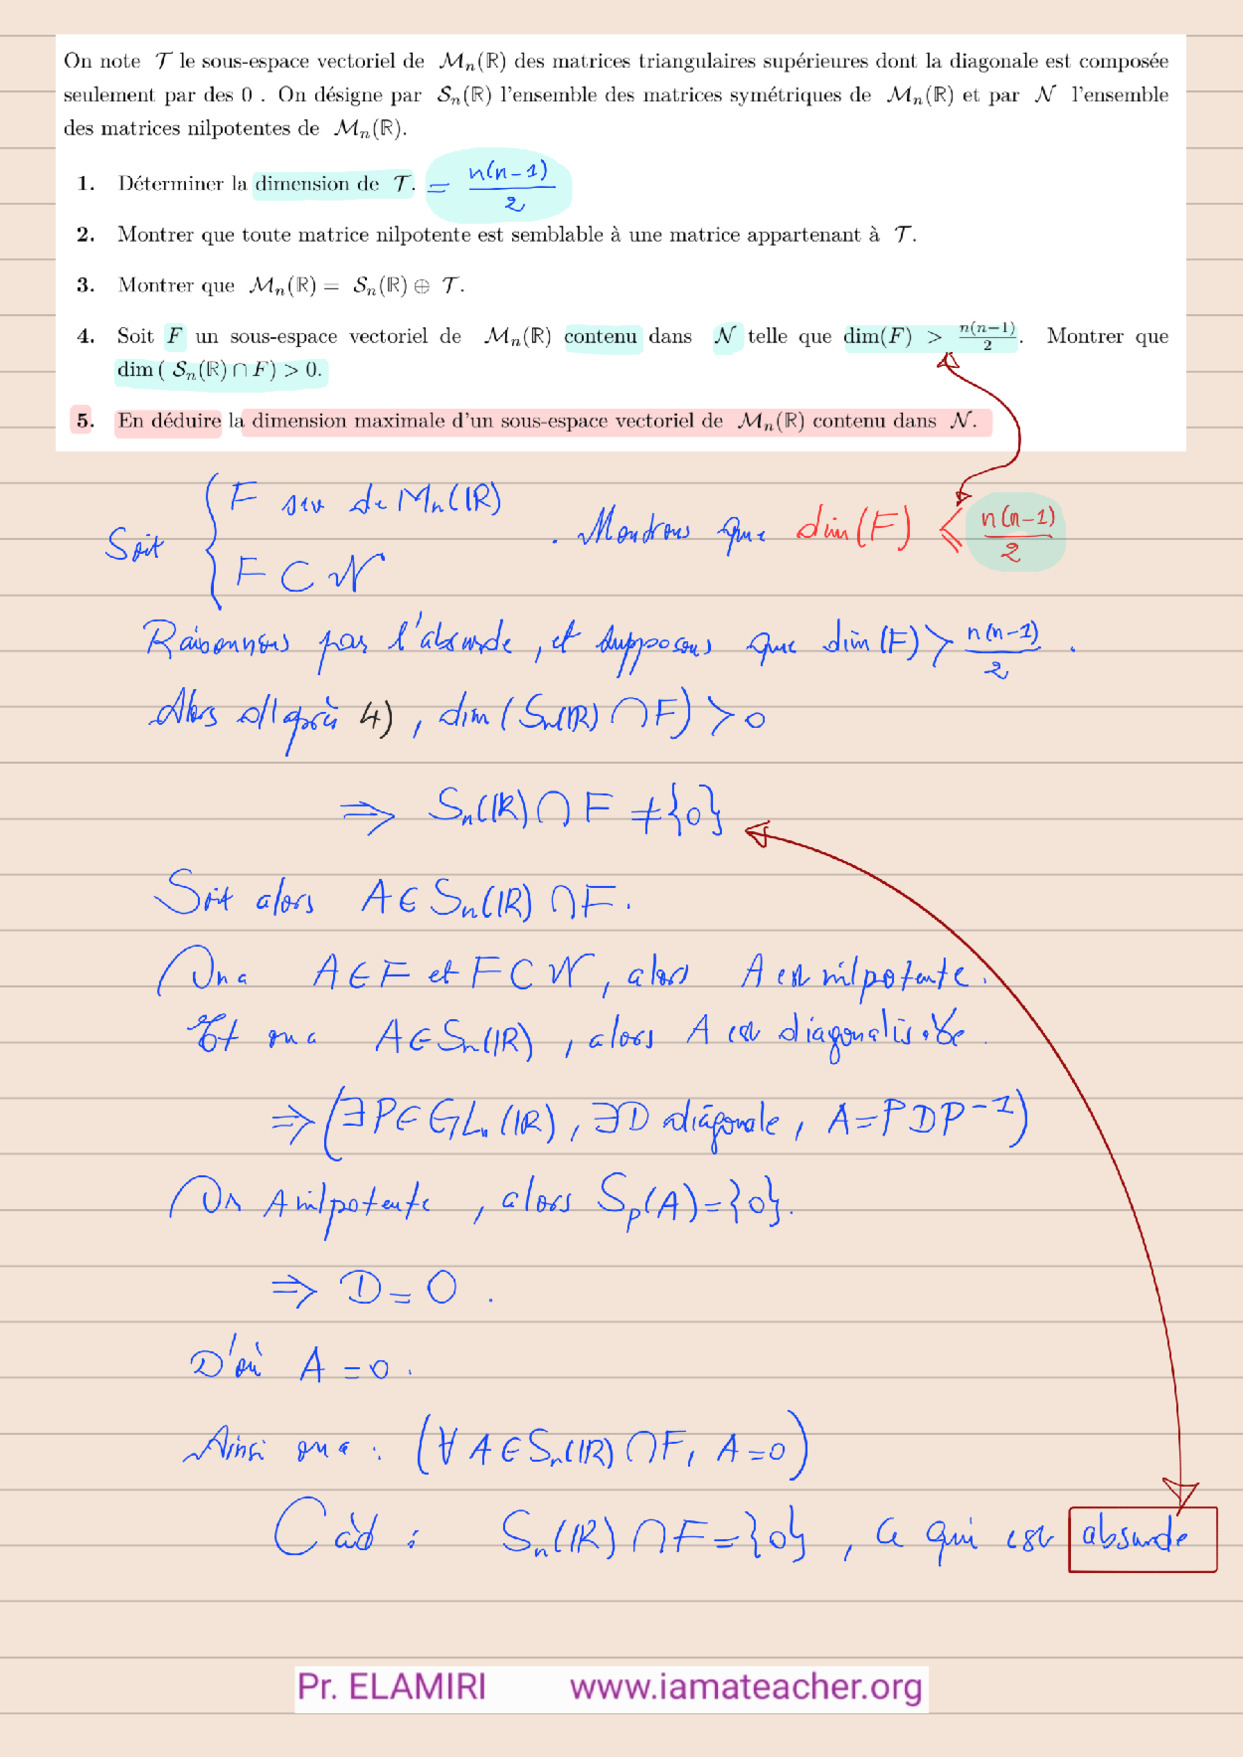 On note 𝒯 le sous-espace vectoriel de ℳₙ(ℝ) des matrices triangulaires supérieures dont la diagonale est composée
seulement par des 0 . On désigne par 𝒮ₙ(ℝ) l'ensemble des matrices symétriques de ℳₙ(ℝ) et par 𝒩 l'ensemble
des matrices nilpotentes de ℳₙ(ℝ).
1. Déterminer la dimension de 𝒯. = n(n-1)/2
2. Montrer que toute matrice nilpotente est semblable à une matrice appartenant à 𝒯.
3. Montrer que ℳₙ(ℝ) = 𝒮ₙ(ℝ) ⊕ 𝒯.
4. Soit F un sous-espace vectoriel de ℳₙ(ℝ) contenu dans 𝒩 telle que dim(F) > n(n−1)/2. Montrer que
dim ( 𝒮ₙ(ℝ) ∩ F) > 0.
5. En déduire la dimension maximale d'un sous-espace vectoriel de ℳₙ(ℝ) contenu dans 𝒩.
Soit { F sev de Mₙ(ℝ)
F ⊂ 𝒩 . Montrons que dim(F) ⩽ n(n-1)/2
Raisonnons par l'absurde, et supposons que dim(F) > n(n-1)/2 .
Alors d'après 4), dim(Sₙ(ℝ) ∩ F) > 0
⇒ Sₙ(ℝ) ∩ F ≠ {0}
Soit alors A ∈ Sₙ(ℝ) ∩ F.
On a A ∈ F et F ⊂ 𝒩, alors A est nilpotente.
Et on a A ∈ Sₙ(ℝ), alors A est diagonalisable.
⇒ (∃P ∈ GLₙ(ℝ), ∃D diagonale, A = PDP⁻¹)
Or A nilpotente, alors Sp(A) = {0}.
⇒ D = 0 .
D'où A = 0 .
Ainsi on a : (∀ A ∈ Sₙ(ℝ) ∩ F, A = 0)
Càd : Sₙ(ℝ) ∩ F = {0}, ce qui est absurde
Pr. ELAMIRI www.iamateacher.org